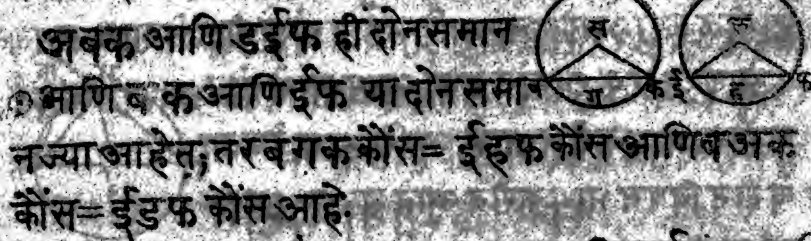 अबक आणि डईफ ही दोन समान
आणि ब क आणि ईफ या दोन समान
स
ग
क ई
ह
नज्या आहेत; तर बगक कौंस= ईहफ कौंस आणि बअक
कौंस= ईडफ कौंस आहे.